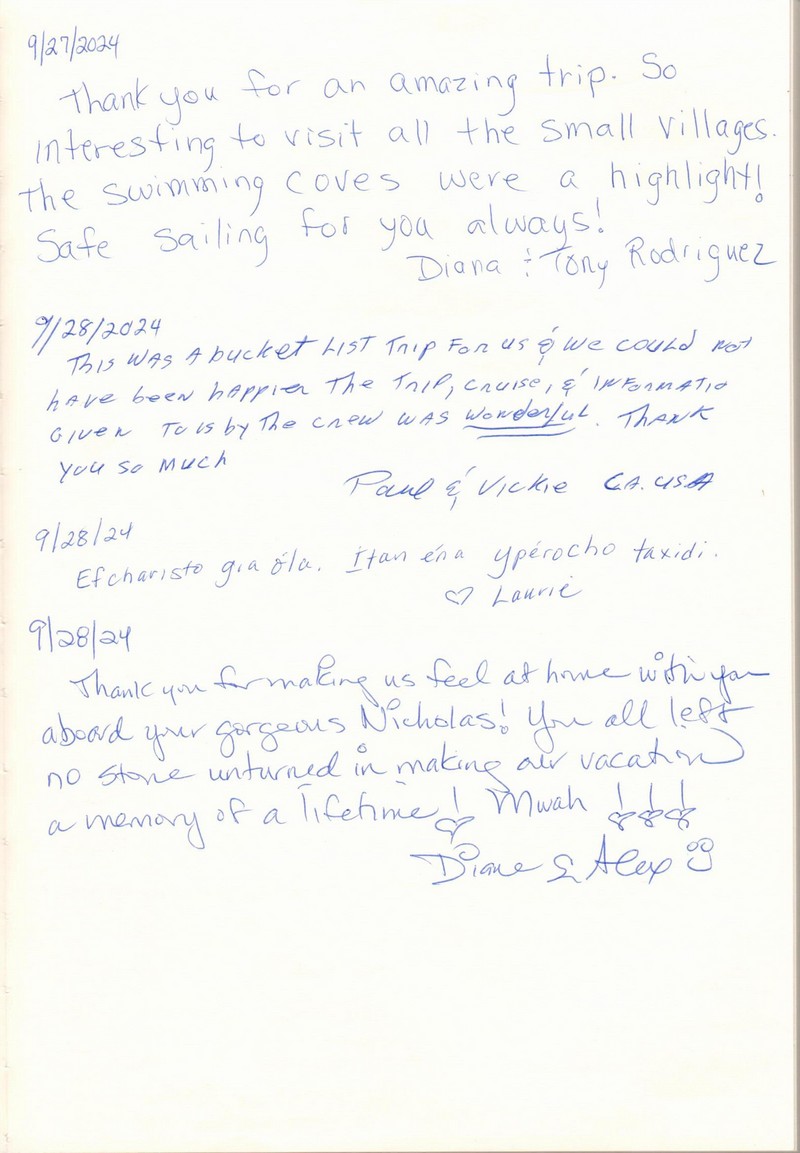 9/27/2024
Thank you for an amazing trip. So
interesting to visit all the small villages.
The swimming coves were a highlight!
Safe sailing for you always!
Diana & Tony Rodriguez
9/28/2024
This was a bucket list trip for us & we could not
have been happier The trip, cruise, & informatio
given to us by the crew was wonderful. Thank
you so much
Paul & Vickie CA. USA
9/28/24
Efcharisto gia óla. Ítan éna ypérocho taxidi.
♡ Laurie
9/28/24
Thank you for making us feel at home with you
aboard your gorgeous Nicholas! You all left
no stone unturned in making our vacation
a memory of a lifetime! Mwah !!!
Diane & Alex